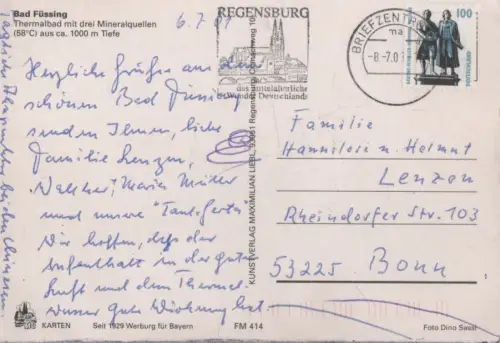 Bad Füssing
Thermalbad mit drei Mineralquellen
(58°C) aus ca. 1000 m Tiefe
6.7.01
Herzliche Grüße aus dem
schönen Bad Füssing
senden Ihnen, liebe
Familie Lenzen,
Walther, Maria Müller
und unsere "Tante
Wir hoffen, daß der
Aufenthalt in der guten
Luft und dem Thermal-
wasser gute Wirkung hat.
KARTEN
Seit 1929 Werbung für Bayern
FM 414
KUNSTVERLAG MAXIMILIAN LIEBL, Regensburg
REGENSBURG
das mittelalterliche
Wunder Deutschlands
BRIEFZENTR
ma
-8-7.0
100
DEUTSCHLAND
Familie
Hannilose u. Helmut
Lenzen
Rheindorfer Str. 103
53225 Bonn
Foto Dino Sassi